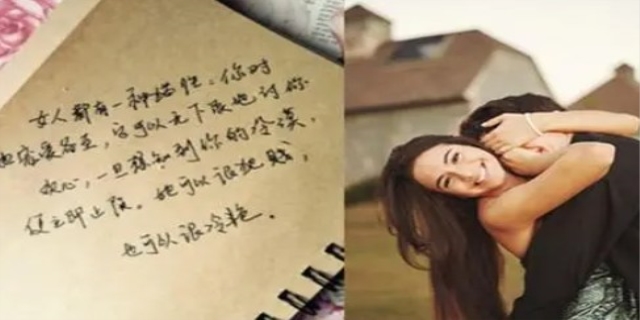 女人都有一种猫性。你对
宠爱备至，它可以无下限地讨你
欢心，一旦感知到你的冷漠，
便立即止。她可以很犯贱，
也可以很冷艳。